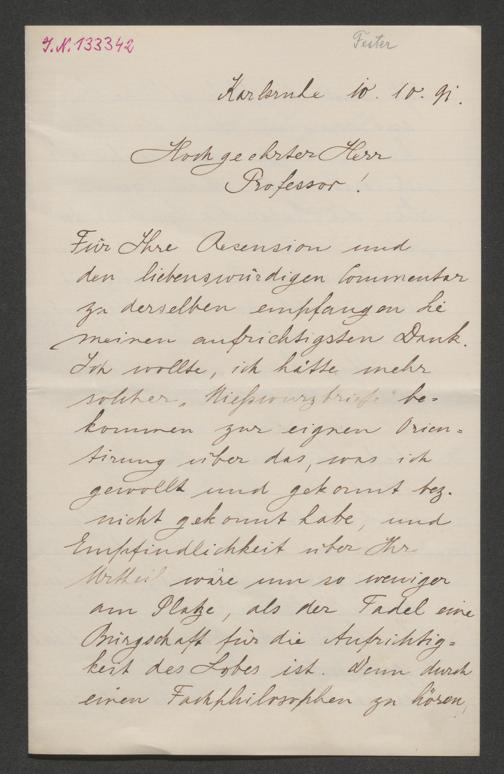 J.N. 133342
Fester
Karlsruhe 10. 10. 91.
Hochgeehrter Herr
Professor!
Für Ihre Recension und
den liebenswürdigen Commentar
zu derselben empfangen Sie
meinen aufrichtigsten Dank.
Ich wollte, ich hätte mehr
solcher „Nießwurzbriefe" be-
kommen zur eignen Orien-
tirung über das, was ich
gewollt und gekonnt bez.
nicht gekonnt habe, und
Empfindlichkeit über Ihr
Urtheil wäre um so weniger
am Platze, als der Tadel eine
Bürgschaft für die Aufrichtig-
keit des Lobes ist. Denn durch
einen Fachphilosophen zu hören,